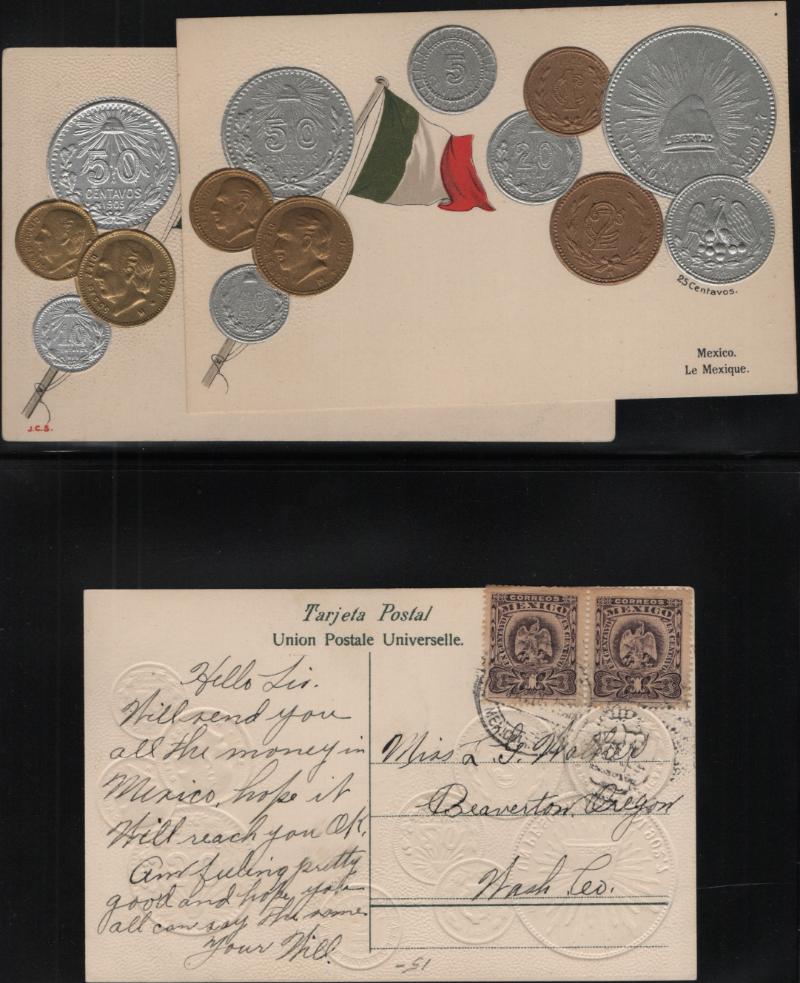 50
CENTAVOS
1905
10
J.C.S.
50
5
20
2
UN PESO
LIBERTAD
M. 902.7
25 Centavos.
Mexico.
Le Mexique.
Tarjeta Postal
Union Postale Universelle.
CORREOS
MEXICO
1
CORREOS
MEXICO
1
MEXICO
Hello Sis.
Will send you
all the money in
Mexico, hope it
Will reach you OK.
Am fuling pretty
good and hope you
all can say the same
Your Will.
Miss L. G.
Beaverton, Oregon
Wash. Co.
15-